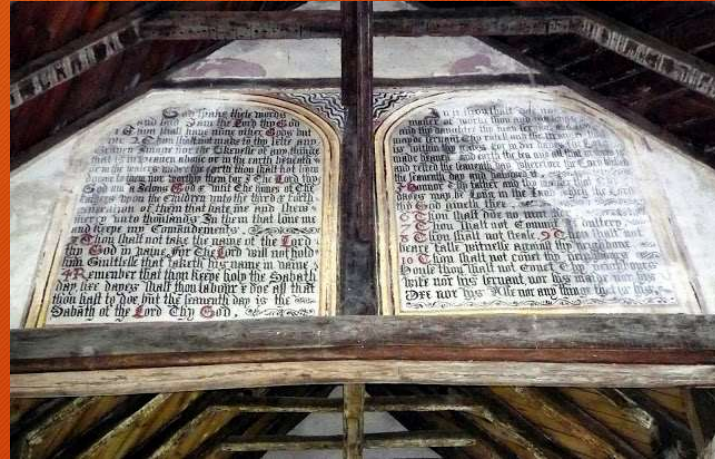 God spake these words
and said I am the Lord thy God
1 Thou shalt have none other Gods but
me 2 Thou shalt not make to thy selfe any
nor the likenesse of any thinge
that is in heaven above or in the earth beneath
or in the water under the earth thou shalt not bow
downe to them nor worship them for I the Lord thy
God am a Jelous God & visit the sinnes of the
Fathers upon the Children unto the third & forth
generation of them that hate me and shew
mercy unto thousands In them that love me
and keepe my Comandements.
3 Thou shalt not take the name of the Lord
thy God in vaine, for The Lord will not hold
him Guiltlesse that taketh his name in vaine,
4 Remember that thou keepe holy the Sabath
day, sixe dayes shalt thou labour & doe all that
thou hast to doe, but the seaventh day is the
Sabath of the Lord Thy God,
In it thou shalt doe no
maner of worke thou and
and thy daughter thy man ser
may de servant Thy cattell and the
is within thy gates, for in sixe
made heaven, and earth the sea and all that
and rested the seaventh day, wherefore the Lord blessed
the seventh day and halowed it
5 Honnor & thy father and thy mother that thy
dayes may be Long in the Land which the Lord
thy God giveth thee
6 Thou shalt doe no murt
7 Thou shalt not Commit adultery
8 Thou shalt not steale 9 Thou shalt not
beare false witnesse against thy neighbour
10 Thou shalt not covet thy neighbours
House thou shalt not Covet Thy neighbours
wife nor his servant, nor his maide nor his
Oxe nor his Asse nor any thing that is his